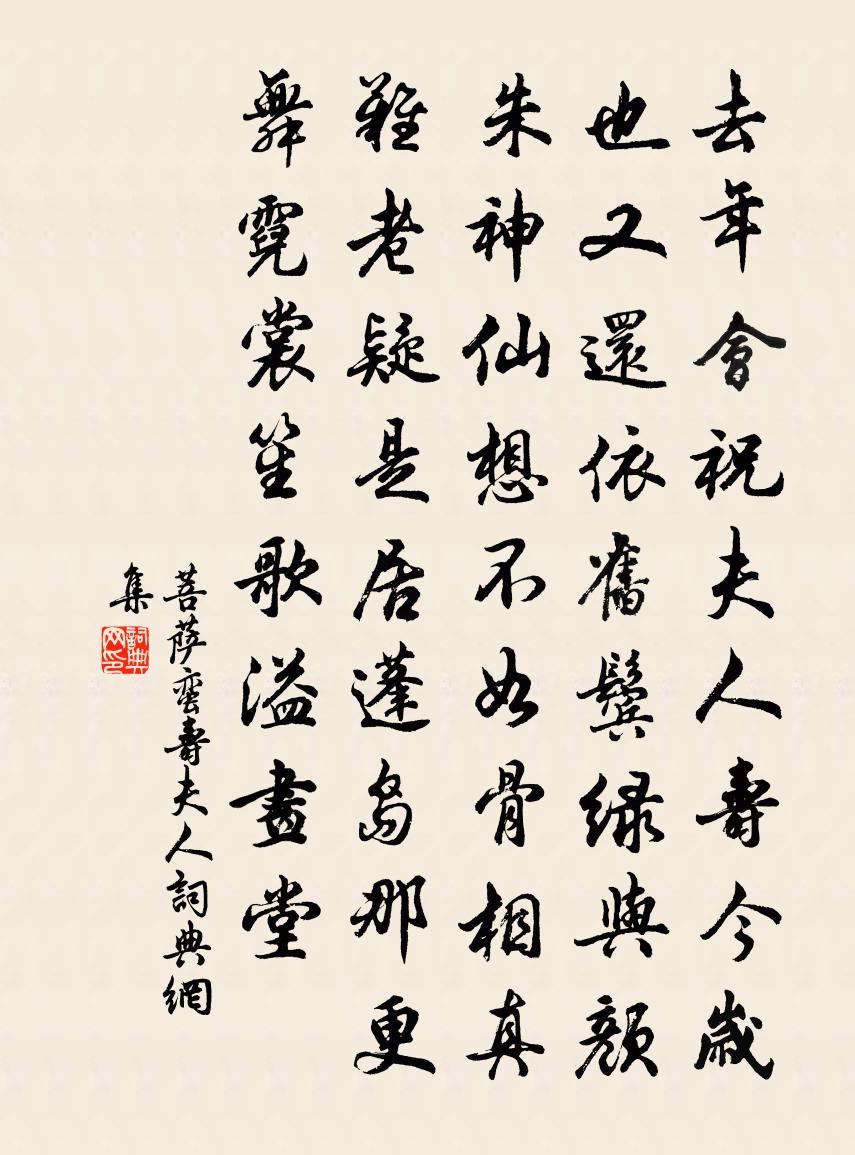 去年會祝夫人壽今歲
也又還依舊鬢綠與顏
朱神仙想不如骨相真
難老疑是居蓬島那更
舞霓裳笙歌溢畫堂
菩薩蠻壽夫人詞典網
集
詞典網印